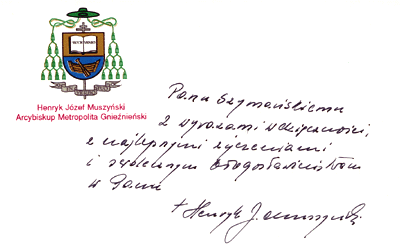 Henryk Józef Muszyński
Arcybiskup Metropolita Gnieźnieński
Panu Szymańskiemu
z wyrazami wdzięczności,
z najlepszymi życzeniami
i błogosławieństwem
w Panu
+ Henryk J. Muszyński